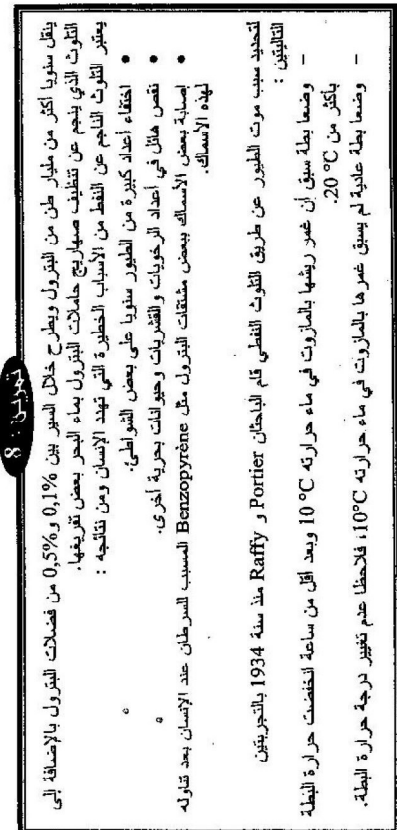 تمرين : 8
ينقل سنويا أكثر من مليار طن من البترول ويطرح خلال السير بين 0,1% و 0,5% من فضلات البترول بالإضافة إلى
التلوث الذي ينجم عن تنظيف صهاريج حاملات البترول بماء البحر بعض تفريغها.
يعتبر التلوث الناجم عن النفط من الأسباب الخطيرة التي تهدد الإنسان ومن نتائجه :
• اختفاء أعداد كبيرة من الطيور سنويا على بعض الشواطئ.
• نقص هائل في أعداد الرخويات والقشريات وحيوانات بحرية أخرى.
• إصابة بعض الأسماك ببعض مشتقات البترول مثل Benzopyrène المسبب للسرطان عند الإنسان بعد تناوله
لهذه الأسماك.
لتحديد سبب موت الطيور عن طريق التلوث النفطي قام الباحثان Portier و Raffy منذ سنة 1934 بالتجربتين
التاليتين :
– وضعا بطة سبق أن غمر ريشها بالمازوت في ماء حرارته 10 °C وبعد أقل من ساعة انخفضت حرارة البطة
بأكثر من 20 °C.
– وضعا بطة عادية لم يسبق غمرها بالمازوت في ماء حرارته 10°C، فلاحظا عدم تغيير درجة حرارة البطة.